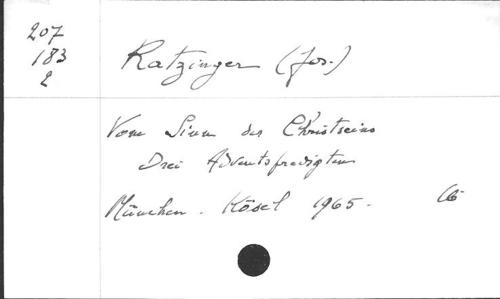 207
183
2
Ratzinger (Jos.)
Vom Sinn des Christseins
Drei Adventspredigten
München. Kösel 1965.